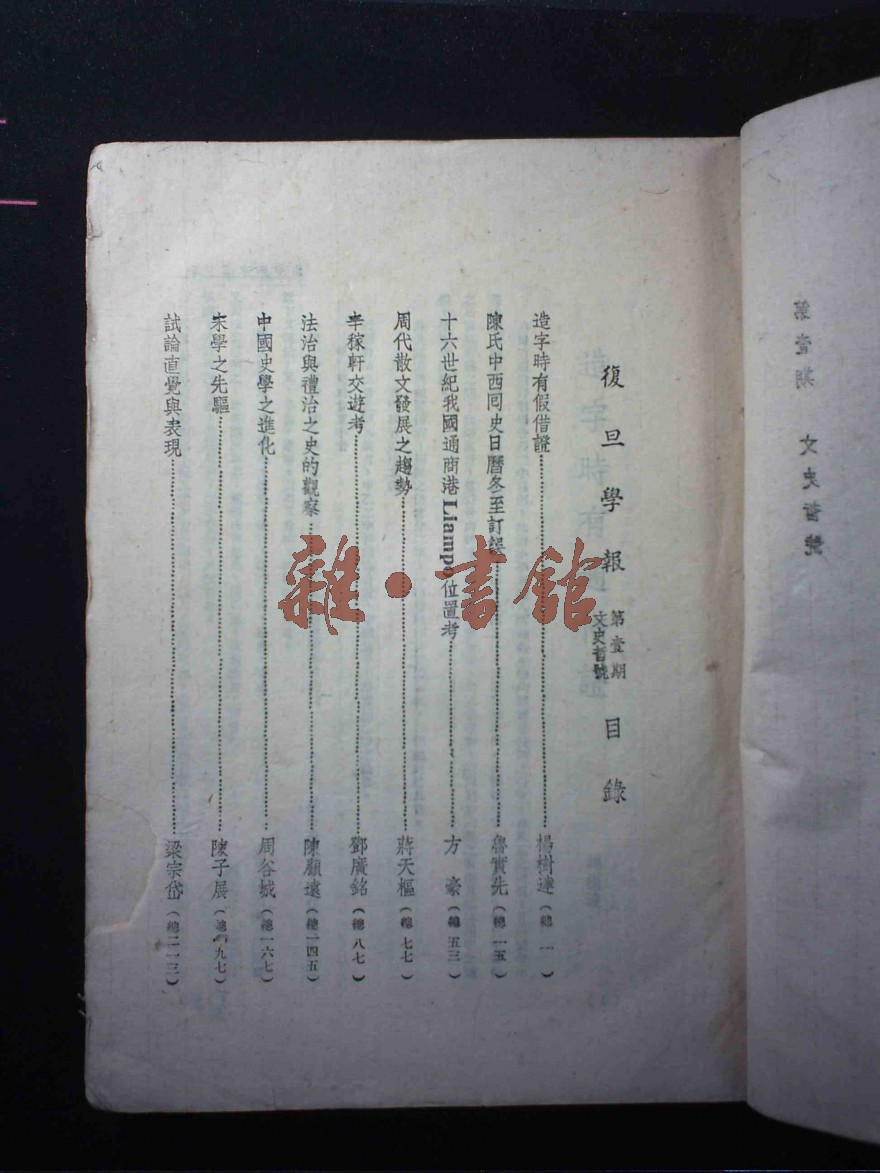 復旦學報 第壹期 文史哲號 目錄
造字時有假借證 楊樹達 (總一)
陳氏中西囘史日曆冬至訂誤 魯實先 (總一五)
十六世紀我國通商港Liampo位置考 方豪 (總五三)
周代散文發展之趨勢 蔣天樞 (總七七)
辛稼軒交遊考 鄧廣銘 (總八七)
法治與禮治之史的觀察 陳顧遠 (總一四五)
中國史學之進化 周谷城 (總一六七)
宋學之先驅 陳子展 (總一九七)
試論直覺與表現 梁宗岱 (總二一三)
雜·書館